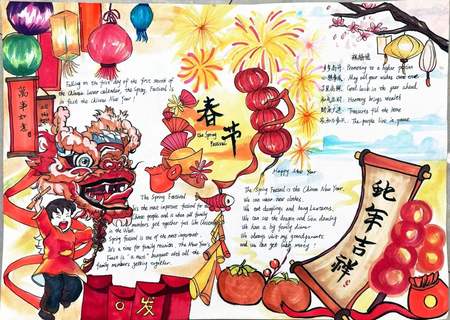 萬事如意
Falling on the first day of the first month of
the Chinese lunar calendar, the Spring Festival is
in fact the Chinese New Year!
春节
the Spring
Festival
祝福语
Promoting to a higher position
May all your wishes come
Good luck in the year ahead
Harmony brings wealth
Treasures fill the home
The people live in peace
The Spring Festival
is the most important festival for
Chinese people and is when all family
members get together just like Christmas
in the West.
Spring Festival is one of the most important.
It's a time for family reunion. The New Year's
Feast is "a must" banquet with all the
family members getting together.
Happy New Year
The Spring Festival is the Chinese New Year.
We can wear new clothes.
eat dumplings, and hang lanterns.
We can see the dragon and lion dancing
We have a big family dinner
We always visit my grandparents
and we can get lucky money!
年吉祥
发